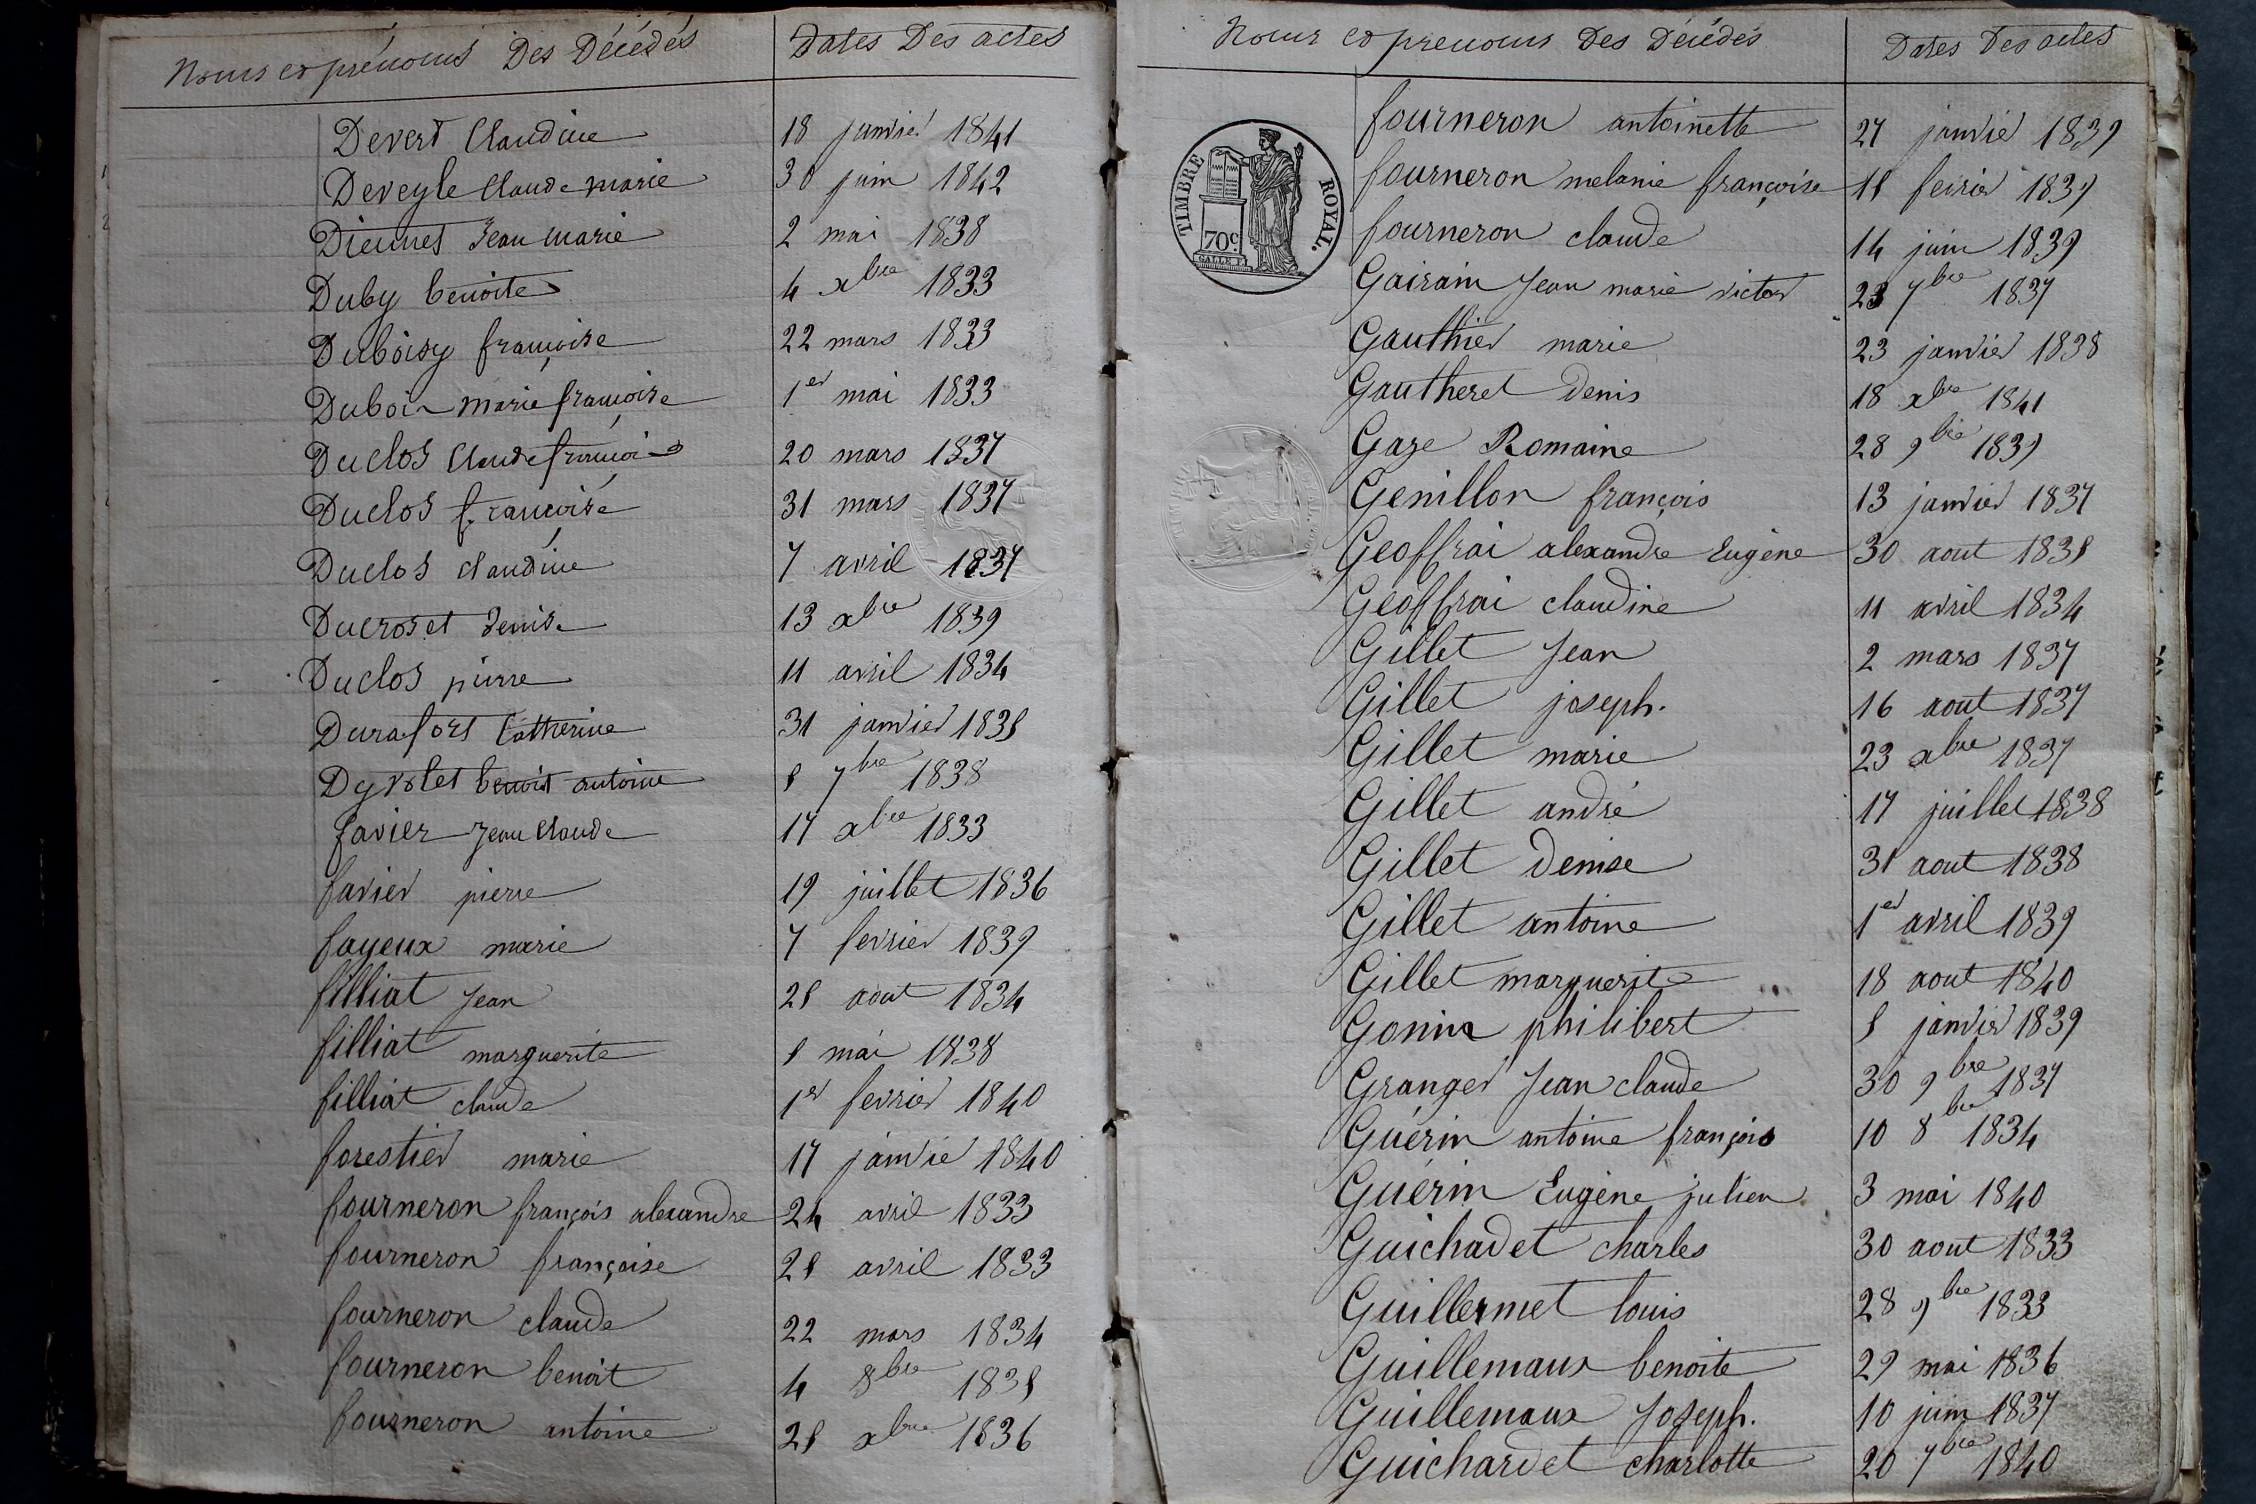 Noms et prénoms Des Décédés Dates Des actes
Devert Claudine 18 janvier 1841
Deveyle Claude marie 30 juin 1842
Diennet Jean marie 2 mai 1838
Duby benoite 4 xbre 1833
Duboisy françoise 22 mars 1833
Dubois marie françoise 1er mai 1833
Duclos Claude françois 20 mars 1837
Duclos françoise 31 mars 1837
Duclos claudine 7 avril 1837
Ducroset Denise 13 xbre 1839
Duclos pierre 11 avril 1834
Durafort Catherine 31 janvier 1838
Dyvolet benoit antoine 8 7bre 1838
favier Jean Claude 17 xbre 1833
favier pierre 19 juillet 1836
fayeux marie 7 fevrier 1839
filliat Jean 28 aout 1834
filliat marguerite 8 mai 1838
filliat claude 1er fevrier 1840
forestier marie 17 janvier 1840
fourneron françois alexandre 24 avril 1833
fourneron françoise 28 avril 1833
fourneron claude 22 mars 1834
fourneron benoit 4 8bre 1838
fourneron antoine 28 xbre 1836
Noms et prenoms Des Décédés Dates Des actes
TIMBRE ROYAL.
70c.
fourneron antoinette 27 janvier 1839
fourneron melanie françoise 18 fevrier 1839
fourneron claude 14 juin 1839
Gairain Jean marie victor 23 7bre 1837
Gauthier marie 23 janvier 1838
Gautheret Denis 18 xbre 1841
Gaze Romaine 28 9bre 1839
Genillon françois 13 janvier 1837
Geoffrai alexandre Eugène 30 aout 1838
Geoffrai claudine 11 avril 1834
Gillet Jean 2 mars 1837
Gillet joseph. 16 aout 1837
Gillet marie 23 xbre 1837
Gillet andré 17 juillet 1838
Gillet Denise 31 aout 1838
Gillet antoine 1er avril 1839
Gillet marguerite 18 aout 1840
Gonin philibert 8 janvier 1839
Granger Jean claude 30 9bre 1837
Guérin antoine françois 10 8bre 1834
Guérin Eugène julien 3 mai 1840
Guichardet charles 30 aout 1833
Guillermet louis 28 9bre 1833
Guillemaux benoite 29 mai 1836
Guillemaux Joseph. 10 juin 1837
Guichardet charlotte 20 7bre 1840